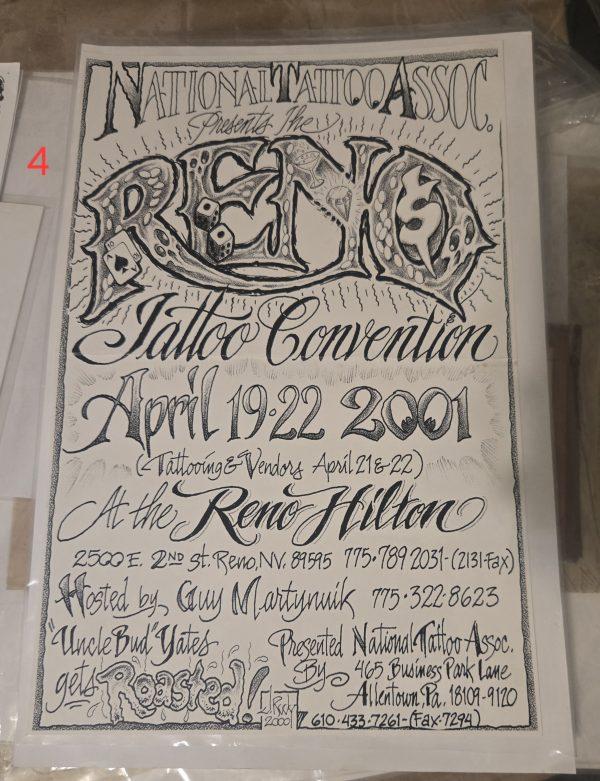 4
National Tattoo Assoc.
Presents the
RENO
Tattoo Convention
April 19·22 2001
(Tattooing & Vendors April 21 & 22)
At the Reno Hilton
2500 E. 2ND St. Reno, NV. 89595 775·789 2031-(2131-Fax)
Hosted by Guy Martynuik 775·322·8623
"Uncle Bud" Yates
gets Roasted!
Presented By National Tattoo Assoc.
465 Business Park Lane
Allentown, Pa. 18109-9120
610·433·7261-(Fax·7294)
2000